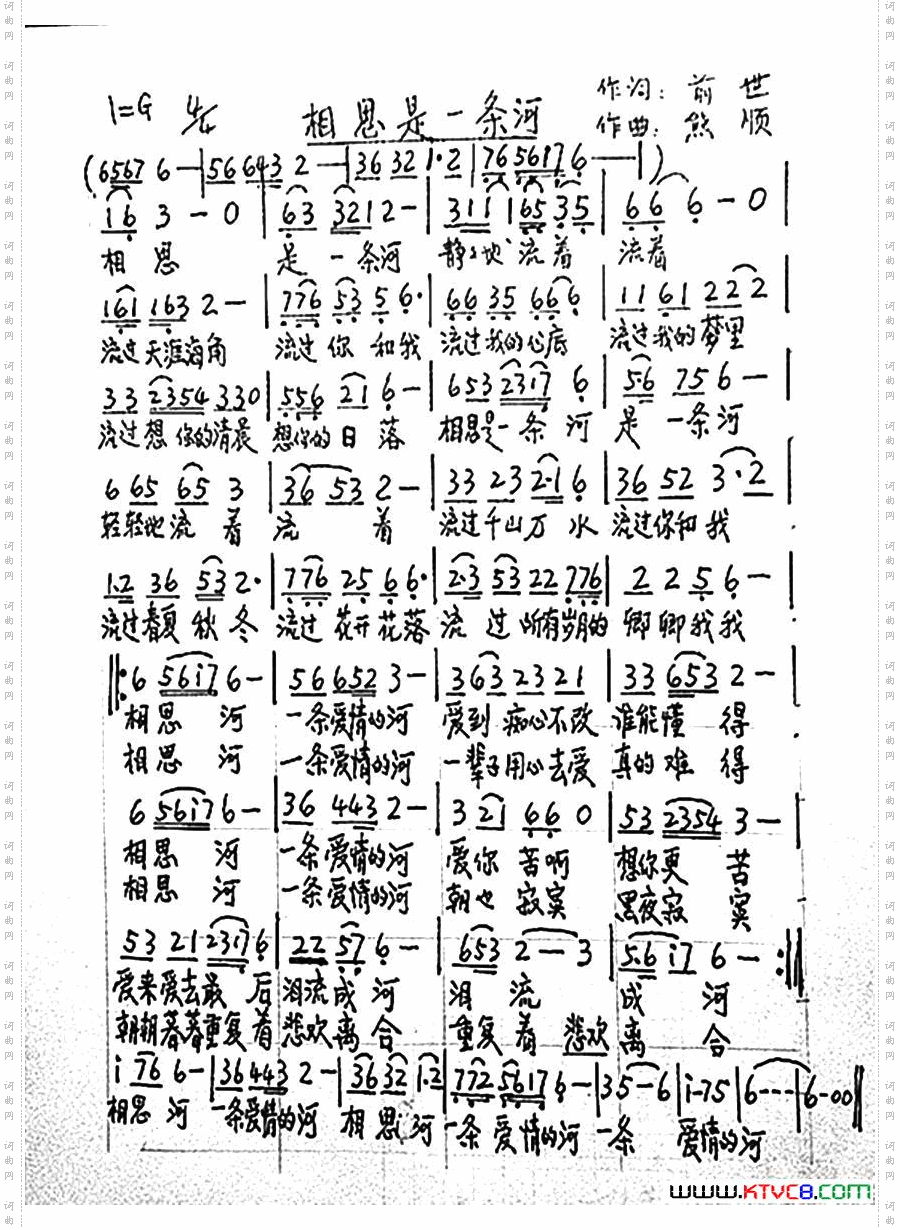 1=G 4/4 相思是一条河 作词：前世
作曲：熊顺
(6567 6—|56 643 2—|36 32 1·2|76 5617 6——|)
i6 3 - 0 |63 3212-|311 165 35|66 6-0|
相思 是一条河 静静地流着 流着
161 163 2—|776 53 5 6·|66 35 66 6|11 61 22 2|
流过天涯海角 流过你和我 流过我的心底 流过我的梦里
33 2354 330|556 21 6—|653 2317 6|5·6 75 6—|
流过想你的清晨 想你的日落 相思是一条河 是一条河
6 65 65 3|36 53 2—|33 23 2·1 6|36 52 3·2|
轻轻地流着 流着 流过千山万水 流过你和我
1·2 36 53 2·|776 25 6 6·|2·3 53 22 776|2 2 5 6—|
流过春夏秋冬 流过花开花落 流过所有岁月的 卿卿我我
‖:6 56i7 6—|56 652 3—|363 23 21|33 653 2—|
相思河 一条爱情的河 爱到痴心不改 谁能懂得
相思河 一条爱情的河 一辈子用心去爱 真的难得
6 56i7 6—|36 443 2—|3 21 66 0|53 2354 3—|
相思河 一条爱情的河 爱你苦啊 想你更苦
相思河 一条爱情的河 朝也寂寞 黑夜寂寞
53 21 2317 6|22 57 6—|653 2—3|5·6 i7 6—:‖
爱来爱去最后 泪流成河 泪流成河
朝朝暮暮重复着 悲欢离合 重复着悲欢离合
i 76 6—|36 443 2—|36 32 1·2|772 5617 6—|35—6|i-75|6---|6-00‖
相思河 一条爱情的河 相思河 一条爱情的河 一条 爱情的河
WWW.KTVC8.COM
词曲网